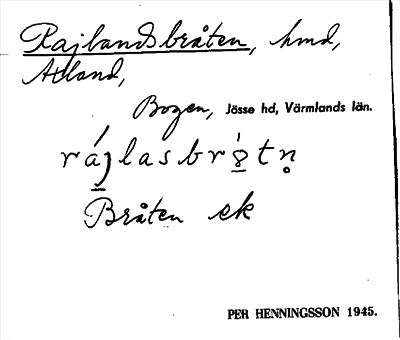 Rajlandsbråten, hmd,
Utland,
Bogen, Jösse hd, Värmlands län.
rájlasbr8́tn̥
Bråten ek
PER HENNINGSSON 1945.